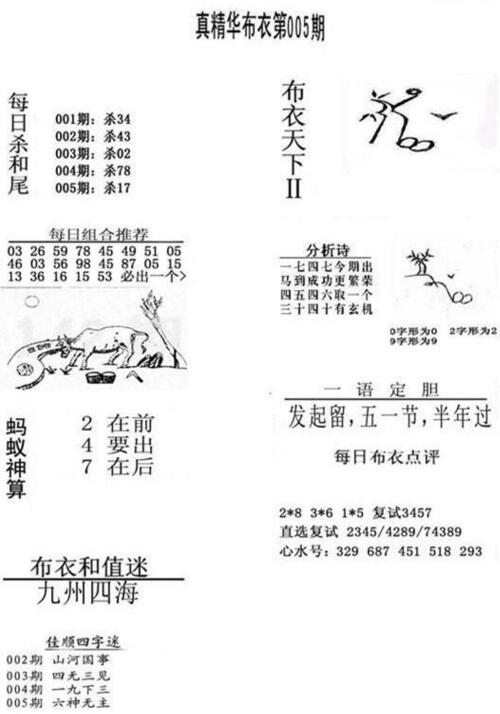 真精华布衣第005期
每日杀和尾
001期：杀34
002期：杀43
003期：杀02
004期：杀78
005期：杀17
每日组合推荐
03 26 59 78 45 49 51 05
46 03 56 98 45 87 05 15
13 36 16 15 53 必出一个>
蚂蚁神算
2 在前
4 要出
7 在后
布衣和值迷
九州四海
佳顺四字迷
002期 山河国事
003期 四无三见
004期 一九下三
005期 六神无主
布衣天下II
分析诗
一七四七今期出
马到成功更繁荣
四五四六取一个
三十四十有玄机
0字形为0 2字形为2
9字形为9
一语定胆
发起留,五一节,半年过
每日布衣点评
2*8 3*6 1*5 复试3457
直选复试 2345/4289/74389
心水号: 329 687 451 518 293